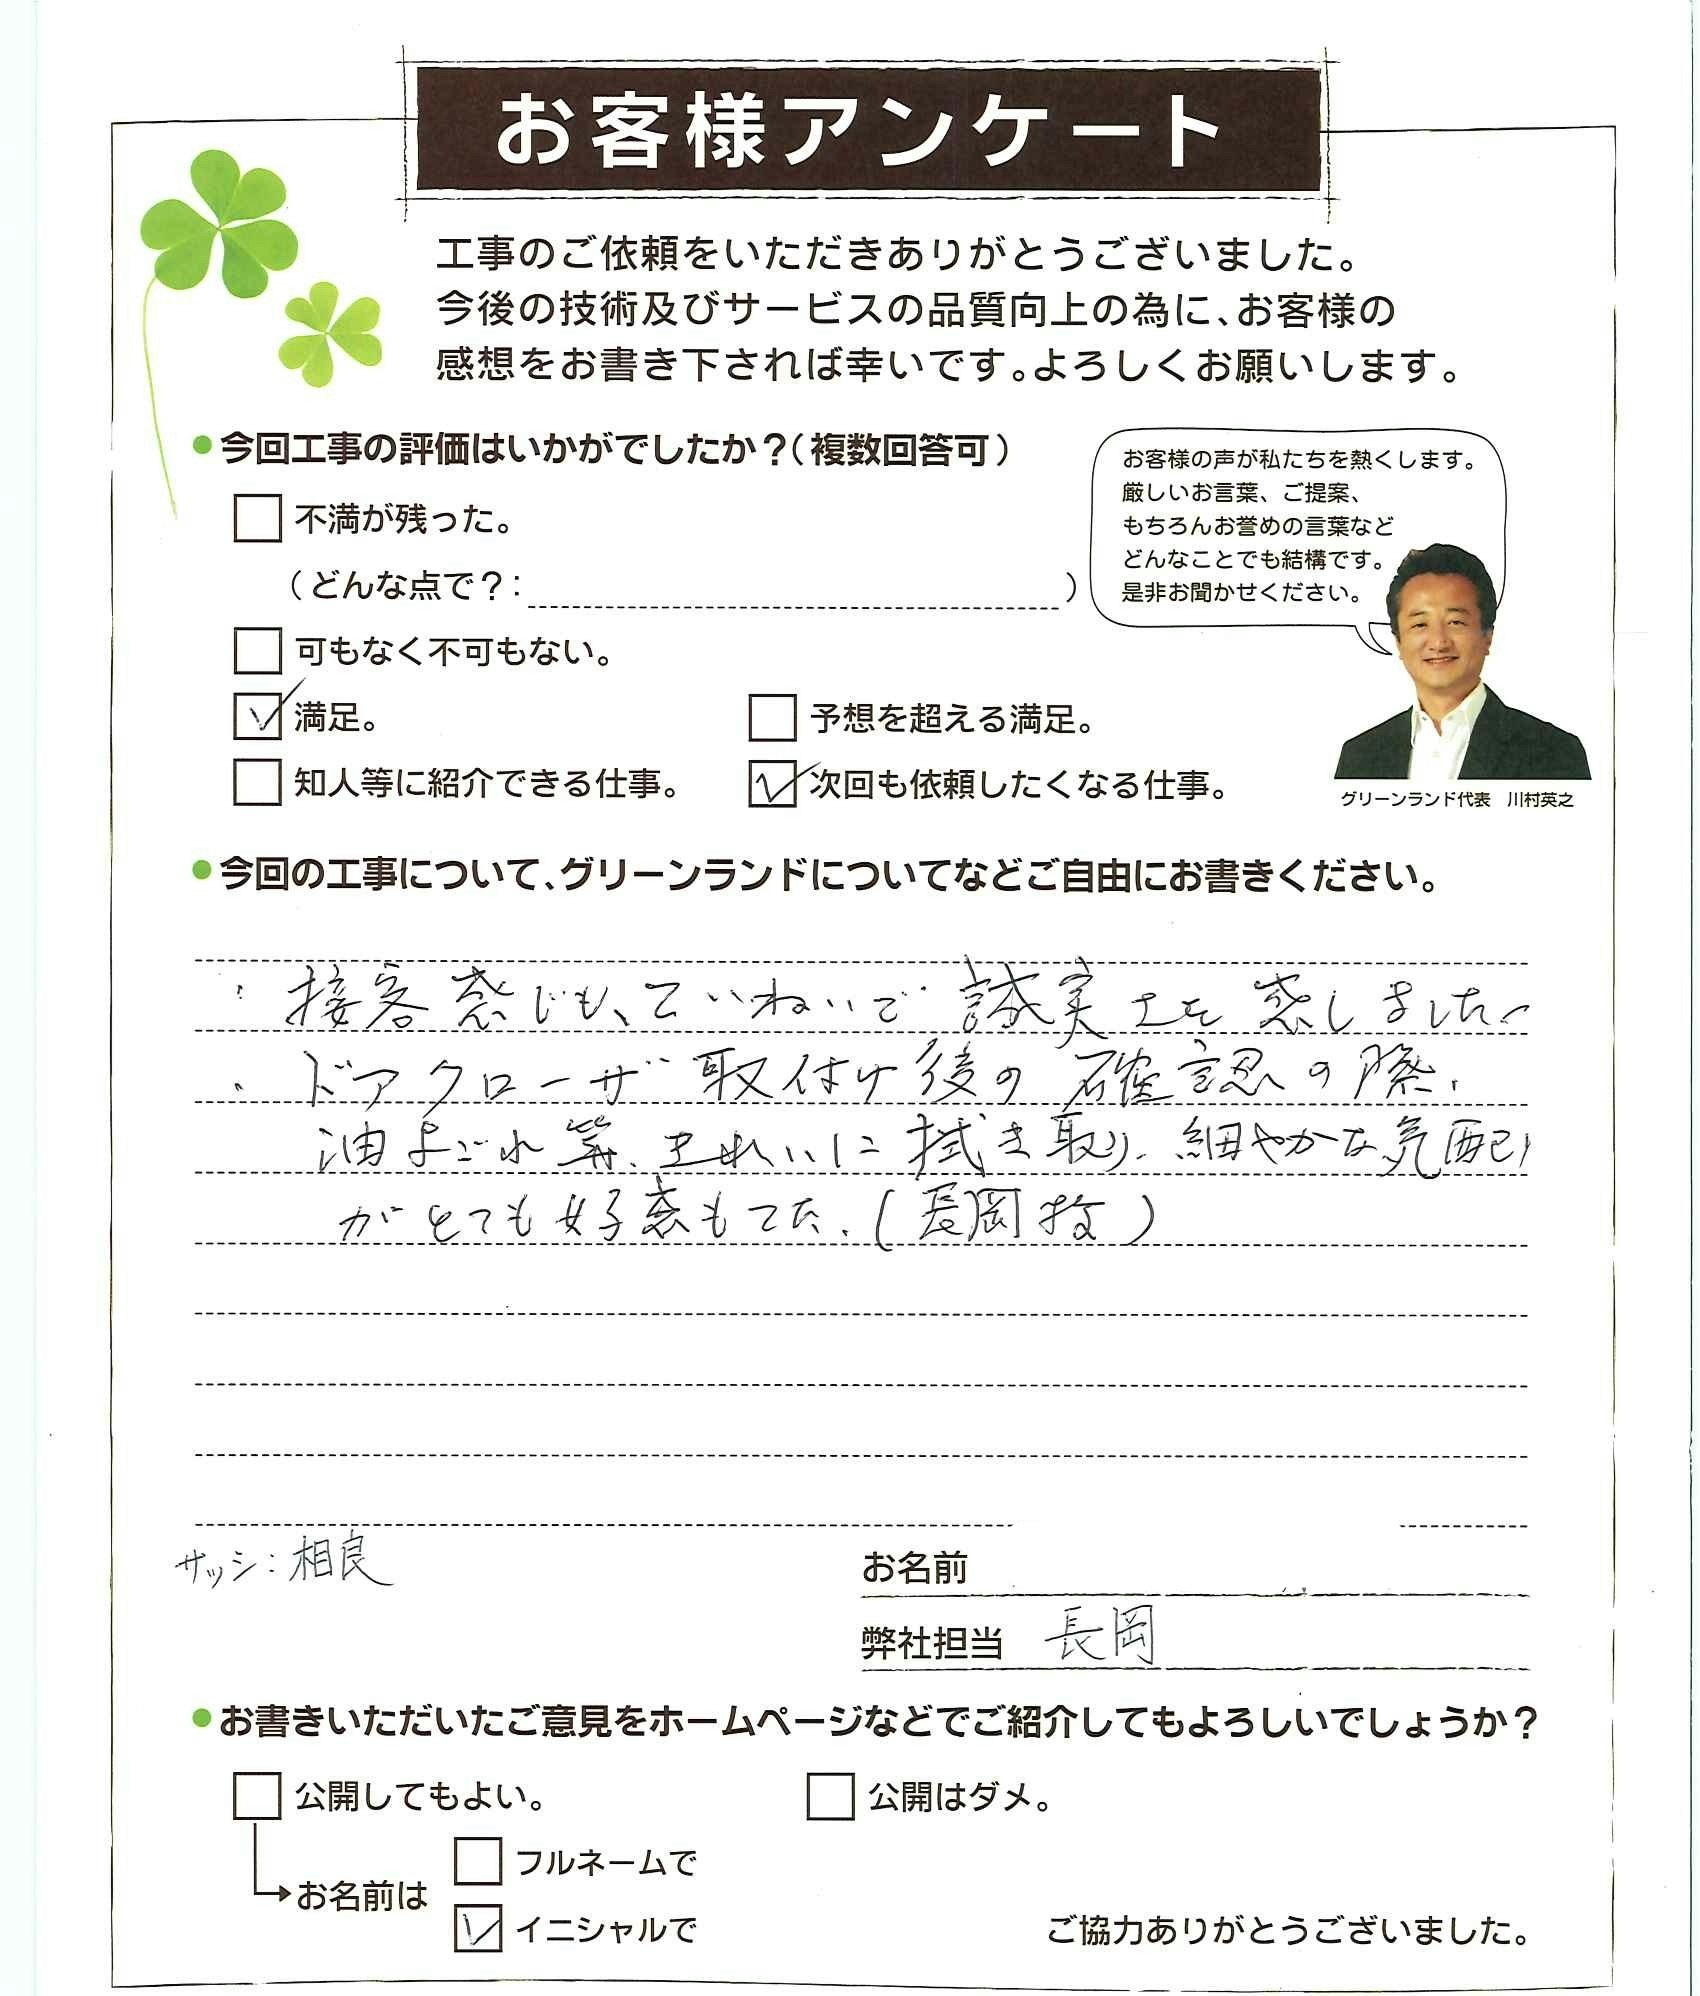 お客様アンケート
工事のご依頼をいただきありがとうございました。
今後の技術及びサービスの品質向上の為に、お客様の
感想をお書き下されば幸いです。よろしくお願いします。
●今回工事の評価はいかがでしたか?(複数回答可)
不満が残った。
(どんな点で?: )
可もなく不可もない。
満足。
予想を超える満足。
知人等に紹介できる仕事。
次回も依頼したくなる仕事。
お客様の声が私たちを熱くします。
厳しいお言葉、ご提案、
もちろんお誉めの言葉など
どんなことでも結構です。
是非お聞かせください。
グリーンランド代表 川村英之
●今回の工事について、グリーンランドについてなどご自由にお書きください。
・接客感じも、ていねいで 誠実さを感しました。
・ドアクローザ取付け後の確認の際、
油よごれ等、きれいに拭き取り、細やかな気配り
がとても好感もてた。(長岡技)
サッシ:相良
お名前
弊社担当 長岡
●お書きいただいたご意見をホームページなどでご紹介してもよろしいでしょうか?
公開してもよい。
公開はダメ。
お名前は
フルネームで
イニシャルで
ご協力ありがとうございました。